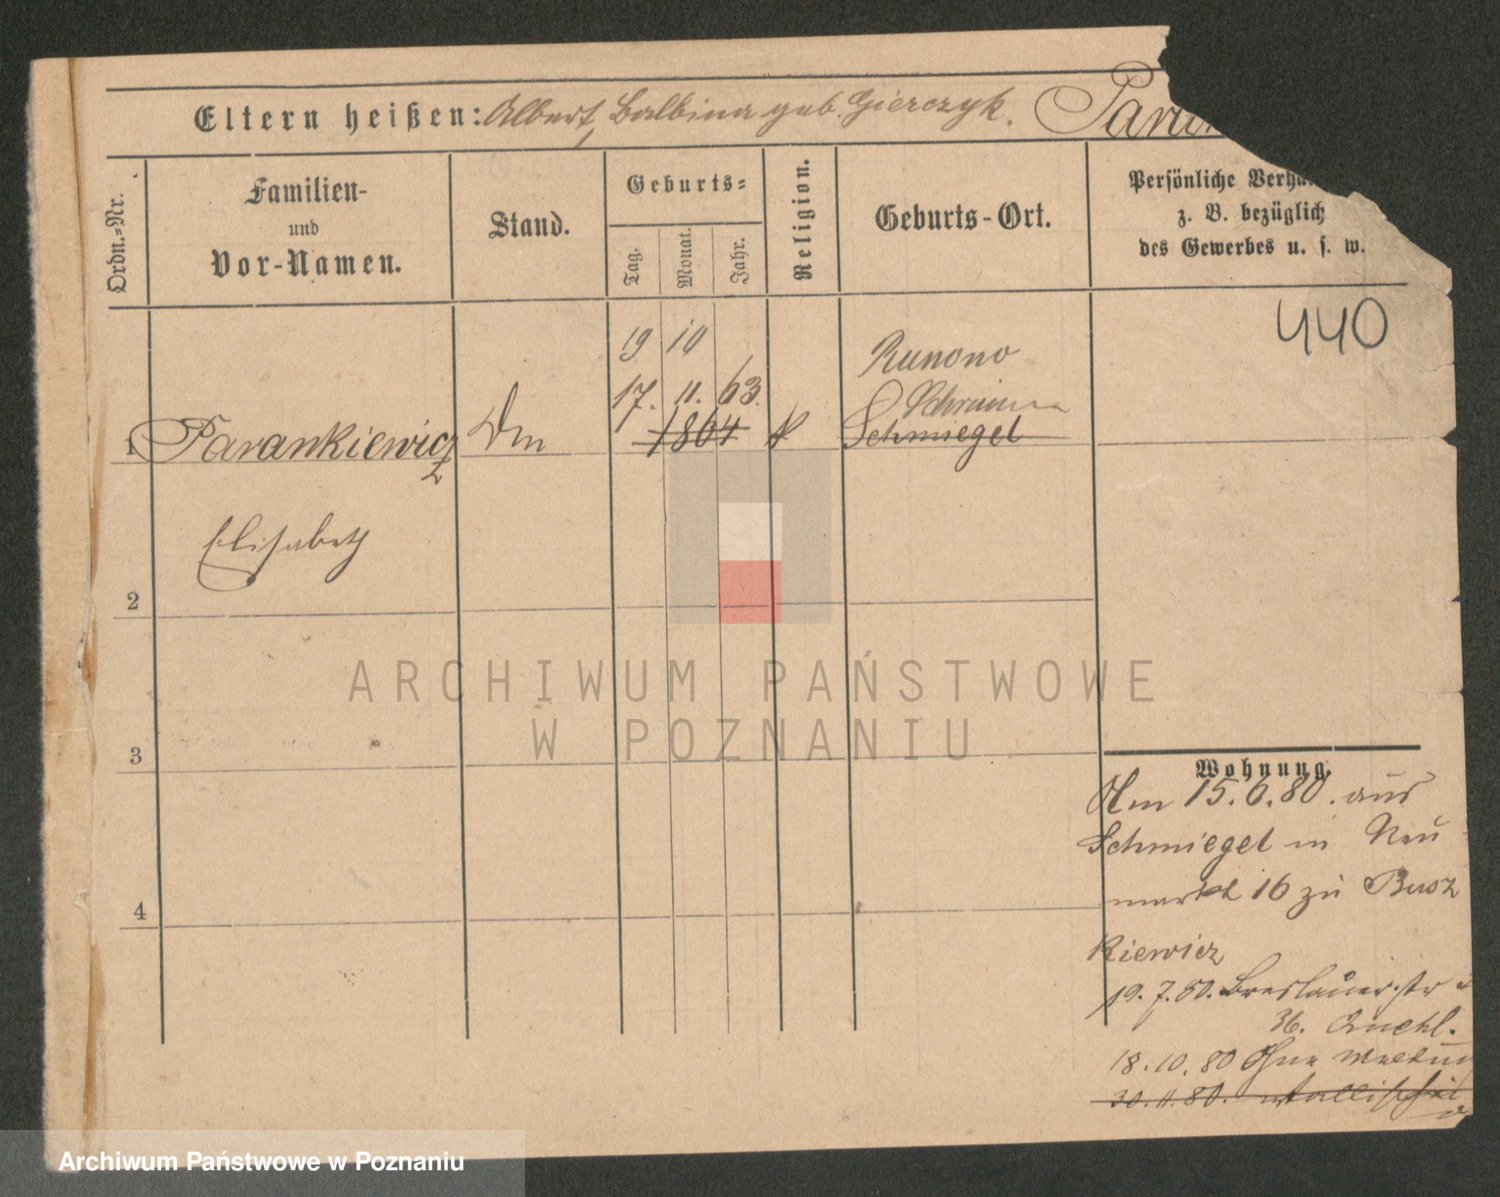 Eltern heißen: Albert, Balbina geb. Gierczyk. Paran
Ordn.-Nr.
Familien-
und
Vor-Namen.
Stand.
Geburts-
Tag.
Monat.
Jahr.
Religion.
Geburts-Ort.
Persönliche Verhä
z. B. bezüglich
des Gewerbes u. s. w.
440
19 10
17. 11. 63.
1864
Runono
Schrimm
Schmiegel
1 Parankiewicz
Elisabeth
2
3
4
Wohnung
Am 15.6.80. aus
Schmiegel in Neu
markt 16 zu Busz
kiewicz
19.7.80. Breslauerstr
36.
18.10.80 Ohne Meldung
30.11.80.
ARCHIWUM PAŃSTWOWE
W POZNANIU
Archiwum Państwowe w Poznaniu